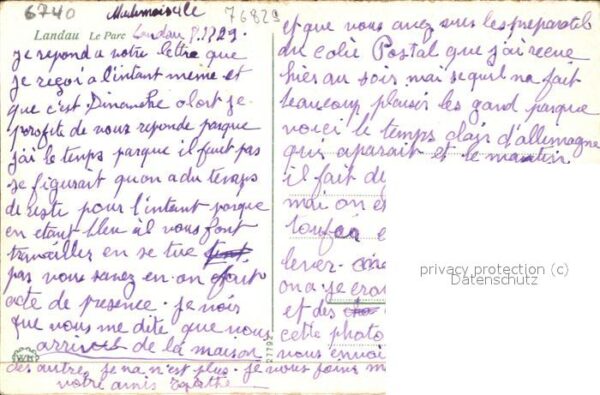 6740
Mademoiselle
76829
Landau Le Parc Landau 8.12.29.
je repond a votre lettre que
je reçoi a l'intant meme et
que c'est Dimanche alort je
profite de vous reponde parque
j'ai le temps parque il faut pas
se figurait quon a du temps
de reste pour l'intant parque
en etant bleu il vous font
travailler en se tue
pas vous savez en on fait
acte de presence. je vois
que vous me dite que vous
arrivet de la maison
des autre. je na n'est plus. je vous
votre amis
et que vous avez vus les preparatif
du colie Postal que j'ai recue
hier au soir mai se qui l na fait
beaucoup plaisir les gand parque
voici le temps clair d'allemagne
qui aparait et le matin
il fait de
mai on es
lever.
on a. je croi
et des
cette photo
vous envoi
27792
privacy protection (c)
Datenschutz